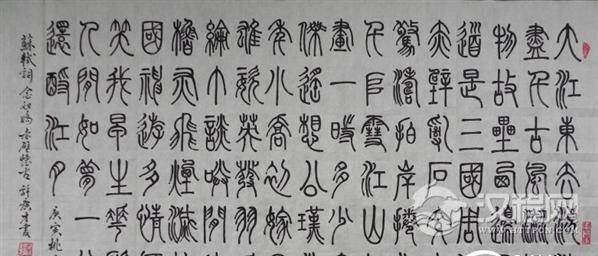 大江東去浪
盡千古風流
物故壘西邊
道是三國周
赤壁亂石穿
驚濤拍岸捲
千堆雪江山
畫一時多少
傑遙想公瑾
年小喬初嫁
雄姿英發羽
綸巾談笑間
櫓灰飛煙滅
國神遊多情
笑我早生華
人間如夢一
還酹江月
庚寅桃
蘇軾詞 念奴嬌 赤壁懷古
汉程网